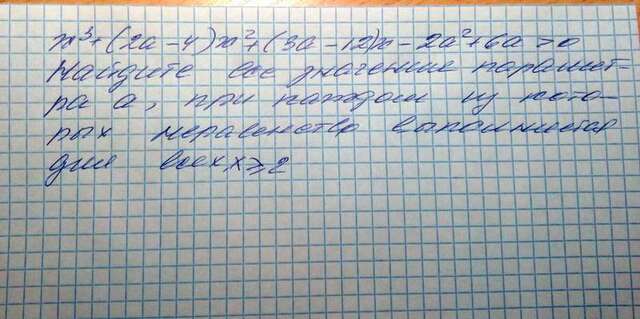 x³+(2a-4)x²+(3a-12)x-2a²+6a>0
Найдите все значение парамет-
ра а, при каждом из кото-
рых неравенство выполняется
для всех x≥2